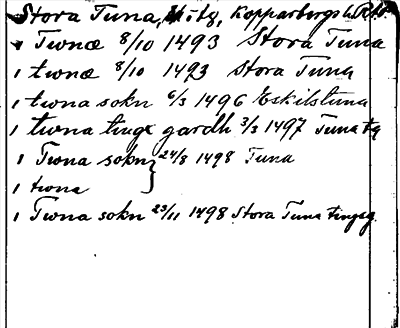 Stora Tuna, Kopparbergs
1 Twnæ 8/10 1493 Stora Tuna
1 twnæ 8/10 1493 Stora Tuna
1 twna sokn 6/3 1496 Eskilstuna
1 twna tinge gardh 3/3 1497 Tuna tg
1 Twna sokn } 24/8 1498 Tuna
1 twna
1 Twna sokn 23/11 1498 Stora Tuna tingsg.